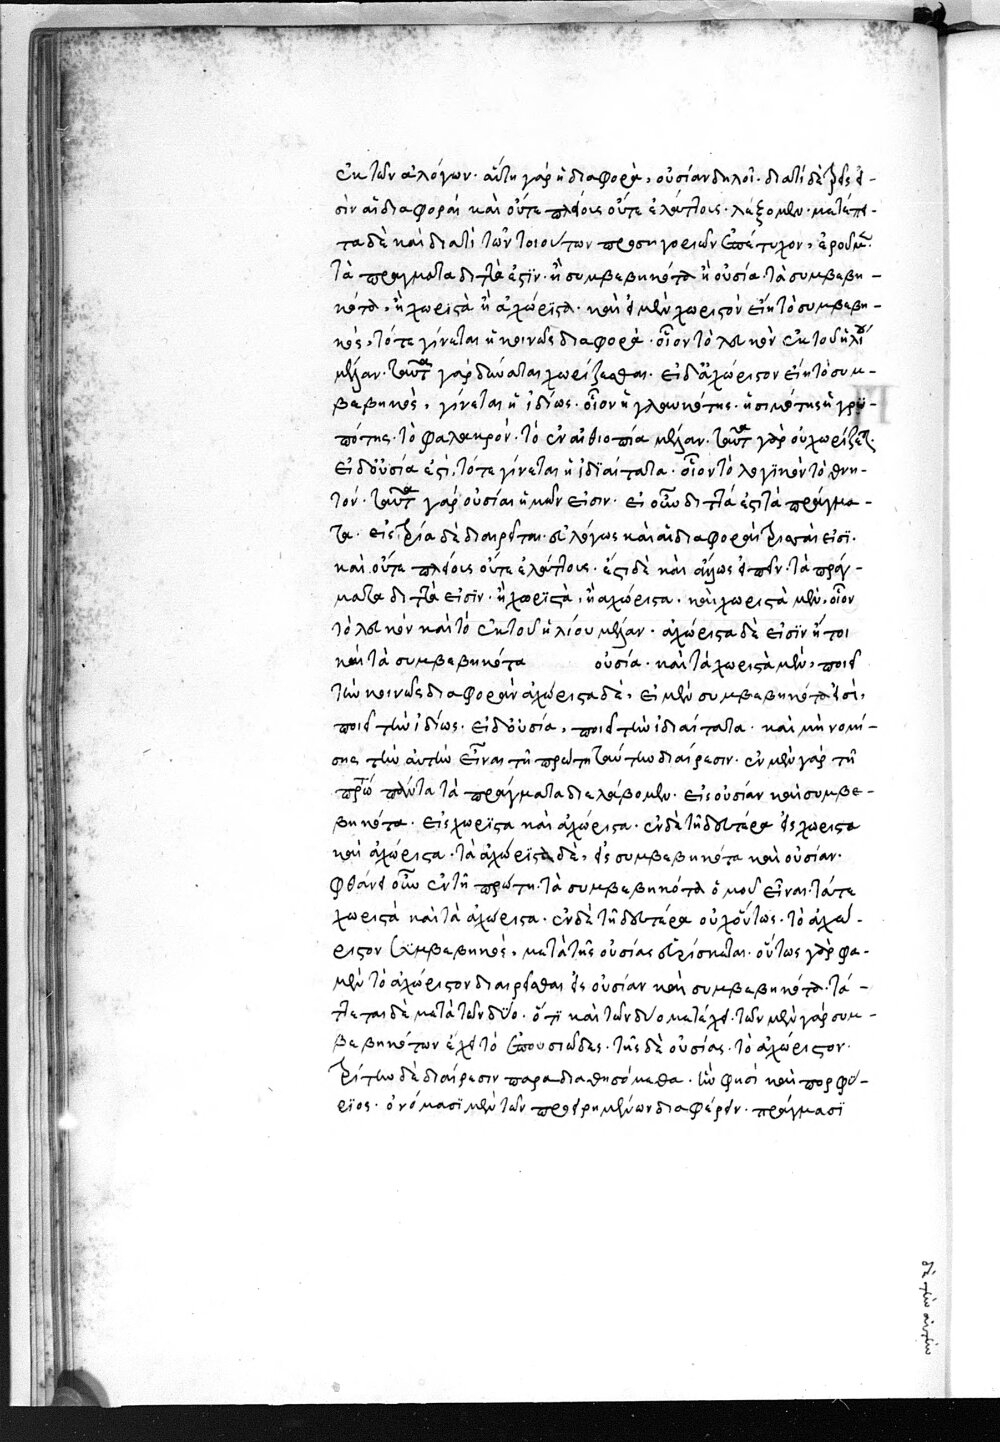 ἐκ τῶν ἀλόγων· αὕτη γὰρ ἡ διαφορὰ, οὐσίαν δηλοῖ· διατί δὲ τρεῖς εἰ-
σὶν αἱ διαφοραὶ καὶ οὔτε πλείους οὔτε ἐλάττους· λέξομεν· μετέπει-
τα δὲ καὶ διατί τῶν τοιούτων προσηγοριῶν ἐπέτυχον, ἐροῦμεν·
τὰ πράγματα διττά ἐστιν· ἢ συμβεβηκότα ἢ οὐσία· τὰ συμβεβη-
κότα, ἢ χωριστὰ ἢ ἀχώριστα· καὶ εἰ μὲν χωριστὸν εἴη τὸ συμβεβη-
κὸς, τότε γίνεται ἡ κοινῶς διαφορὰ· οἷον τὸ λευκὸν ἐκ τοῦ ἡλίου
μέλαν· ταῦτα γὰρ δύναται χωρίζεσθαι· εἰ δ' ἀχώριστον εἴη τὸ συμ-
βεβηκὸς, γίνεται ἡ ἰδίως· οἷον ἡ γλαυκότης· ἡ σιμότης ἡ γρυ-
πότης· τὸ φαλακρόν· τὸ ἐν αἰθιοπία μέλαν· ταῦτα γὰρ οὐ χωρίζεται·
εἰ δ' οὐσία ἐστὶ, τότε γίνεται ἡ ἰδϊαίτατα· οἷον τὸ λογικὸν τὸ θνη-
τόν· ταῦτα γὰρ οὐσίαι ἡμῶν εἰσιν· εἰ οὖν διττά ἐστι τὰ πράγμα-
τα· εἰς τρία δὲ διαιρεῖται· εὐλόγως καὶ αἱ διαφοραὶ τριτταὶ εἰσϊ·
καὶ οὔτε πλείους οὔτε ἐλάττους· ἔστι δὲ καὶ ἄλλως εἰπεῖν· τὰ πράγ-
ματα διττὰ εἰσϊν· ἢ χωρϊστὰ, ἢ ἀχώριστα· καὶ χωριστὰ μὲν, οἷον
τὸ λευκὸν καὶ τὸ ἐκ τοῦ ἡλίου μέλαν· ἀχώριστα δὲ εἰσϊν ἤτοι
καὶ τὰ συμβεβηκότα οὐσία· καὶ τὰ χωριστὰ μὲν, ποιεῖ
τὴν κοινῶς διαφορὰν ἀχώριστα δὲ, εἰ μὲν συμβεβηκότα εἰσὶ,
ποιεῖ τὴν ἰδίως· εἰ δ' οὐσία, ποιεῖ τὴν ἰδιαίτατα· καὶ μὴ νομί-
σῃς τὴν αὐτὴν εἶναι τῇ πρώτῃ ταύτην διαίρεσιν· ἐν μὲν γὰρ τῇ
πρώτῃ πάντα τὰ πράγματα διελάβομεν· εἰς οὐσίαν καὶ συμβε-
βηκότα· εἰς χωρϊστα καὶ ἀχώριστα· ἐν δὲ τῇ δευτέρα εἰς χωριστα
καὶ ἀχώριστα· τὰ ἀχώρϊστα δὲ, εἰς συμβεβηκότα καὶ οὐσίαν·
φθάνει οὖν ἐν τῇ πρώτῃ· τὰ συμβεβηκότα ὁμοῦ εἶναι· τά τε
χωριστὰ καὶ τὰ ἀχώριστα· ἐν δὲ τῇ δευτέρα οὐχ οὕτως· τὸ ἀχώ-
ριστον συμβεβηκὸς, μετὰ τῆς οὐσίας εὑρίσκεται· οὕτως γὰρ φα-
μὲν τὸ ἀχώριστον διαιρεῖσθαι εἰς οὐσίαν καὶ συμβεβηκότα· τά-
ττεται δὲ μετὰ τῶν δύο· ὅτϊ καὶ τῶν δύο μετέχει· τῶν μὲν γὰρ συμ-
βεβηκότων ἔχει τὸ ἐπουσιῶδες· τῆς δὲ οὐσίας· τὸ ἀχώριστον·
τρίτην δὲ διαίρεσιν παραδιαθησόμεθα· ἣν φησὶ καὶ πορφύ-
ρϊος· ὀνόμασϊ μὲν τῶν προειρημένων διαφέρειν· πράγμασϊ
δὲ τὴν αὐτὴν